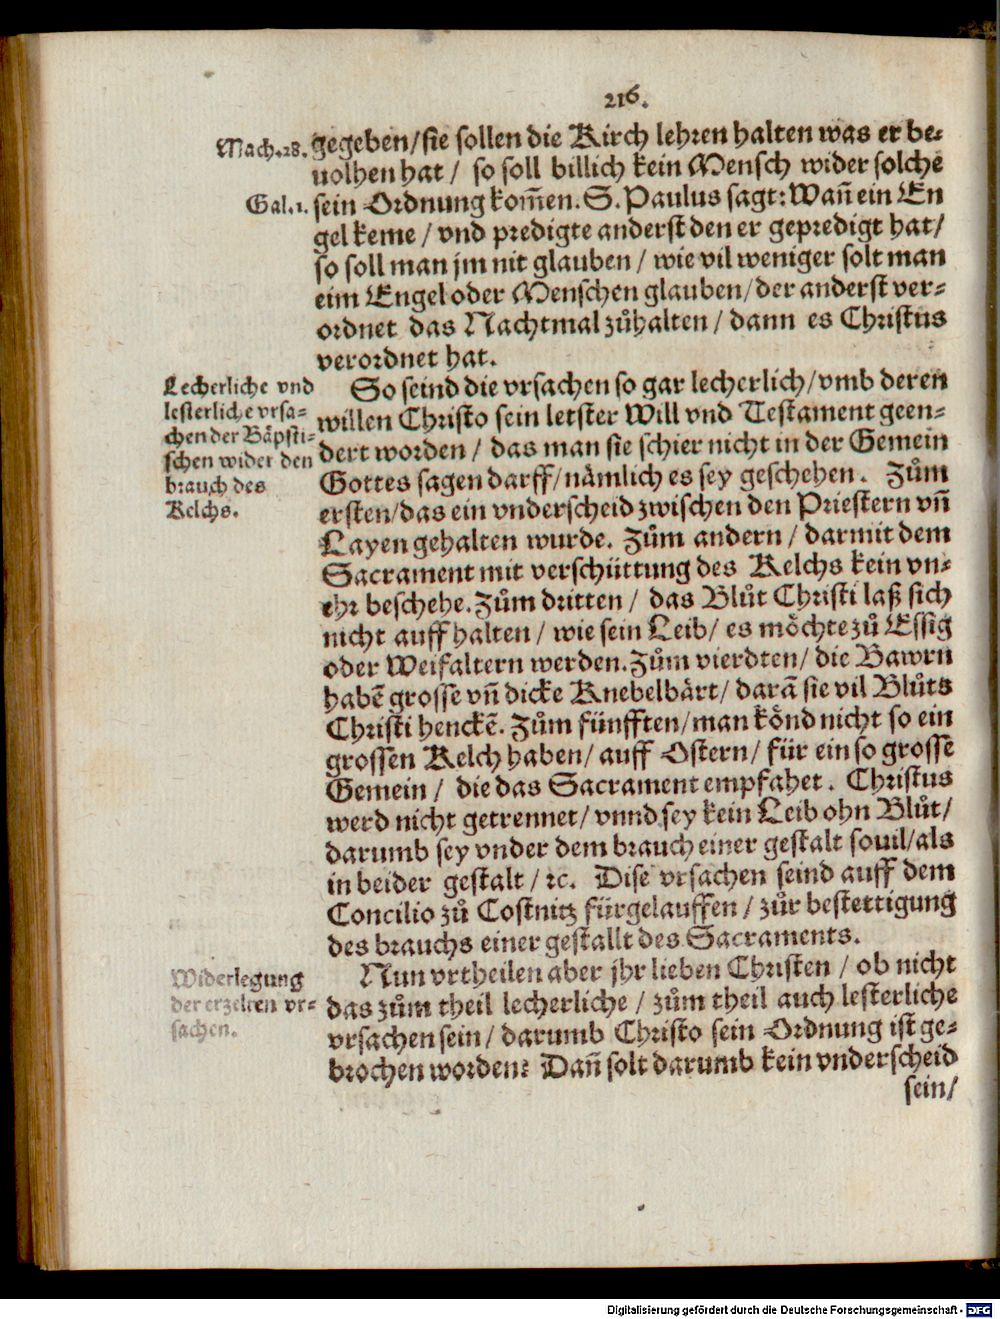 216.
Math.28.
gegeben/sie sollen die Kirch lehren halten was er be-
uolhen hat / so soll billich kein Mensch wider solche
Gal.1.
sein Ordnung kom̃en. S. Paulus sagt: Wañ ein En
gel keme / vnd predigte anderst den er gepredigt hat/
so soll man jm nit glauben / wie vil weniger solt man
eim Engel oder Menschen glauben/der anderst ver-
ordnet das Nachtmal zůhalten / dann es Christus
verordnet hat.
Lecherliche vnd
lesterliche vrsa-
chen der Båpsti-
schen wider den
brauch des
Kelchs.
So seind die vrsachen so gar lecherlich/vmb deren
willen Christo sein letster Will vnd Testament geen-
dert worden / das man sie schier nicht in der Gemein
Gottes sagen darff/nåmlich es sey geschehen. Zům
ersten/das ein vnderscheid zwischen den Priestern vñ
Layen gehalten wurde. Zům andern / darmit dem
Sacrament mit verschüttung des Kelchs kein vn-
ehr beschehe. Zům dritten / das Blůt Christi laß sich
nicht auff halten / wie sein Leib/ es möchte zů Essig
oder Weifaltern werden. Zům vierdten/ die Bawrn
habẽ grosse vñ dicke Knebelbårt/ darã sie vil Blůts
Christi henckẽ. Zům fünfften/man könd nicht so ein
grossen Kelch haben/ auff Ostern/ für ein so grosse
Gemein / die das Sacrament empfahet. Christus
werd nicht getrennet/ vnnd sey kein Leib ohn Blůt/
darumb sey vnder dem brauch einer gestalt souil/als
in beider gestalt / ꝛc. Dise vrsachen seind auff dem
Concilio zů Costnitz fürgelauffen / zůr bestettigung
des brauchs einer gestallt des Sacraments.
Widerlegung
der erzelten vr-
sachen.
Nun vrtheilen aber jhr lieben Christen / ob nicht
das zům theil lecherliche / zům theil auch lesterliche
vrsachen sein/ darumb Christo sein Ordnung ist ge-
brochen worden? Dañ solt darumb kein vnderscheid
sein/
Digitalisierung gefördert durch die Deutsche Forschungsgemeinschaft - DFG